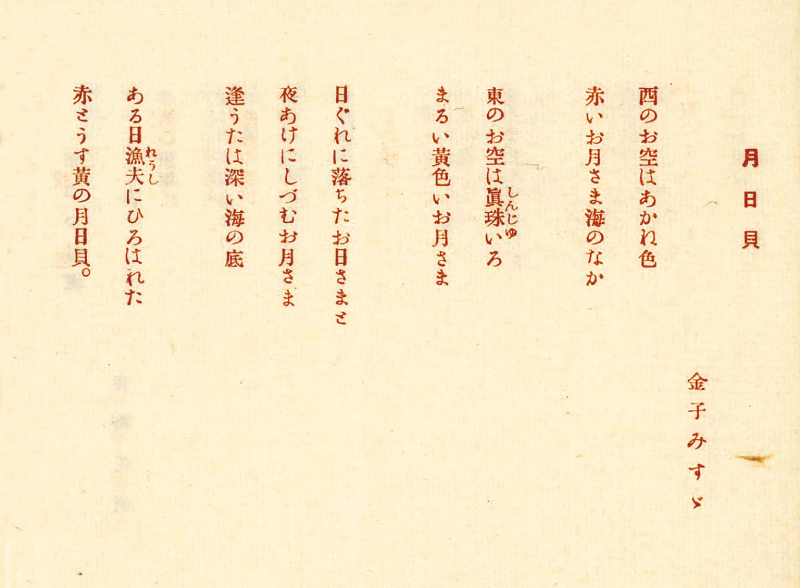 月日貝
金子みすゞ
西のお空はあかね色
赤いお月さま海のなか
東のお空は眞珠いろ
しんじゆ
まるい黃色いお月さま
日ぐれに落ちたお日さまと
夜あけにしづむお月さま
逢うたは深い海の底
ある日漁夫にひろはれた
れうし
赤とうす黃の月日貝。